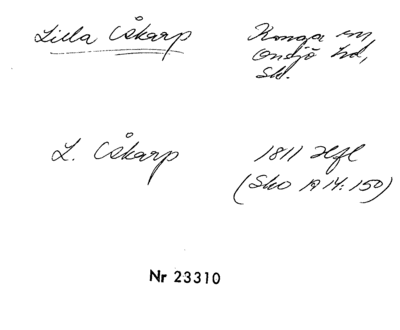 Lilla Åkarp
Konga sn,
Onsjö hd,
Sk.
L. Åkarp
1811 Hfl
(Sko 1914:150)
Nr 23310